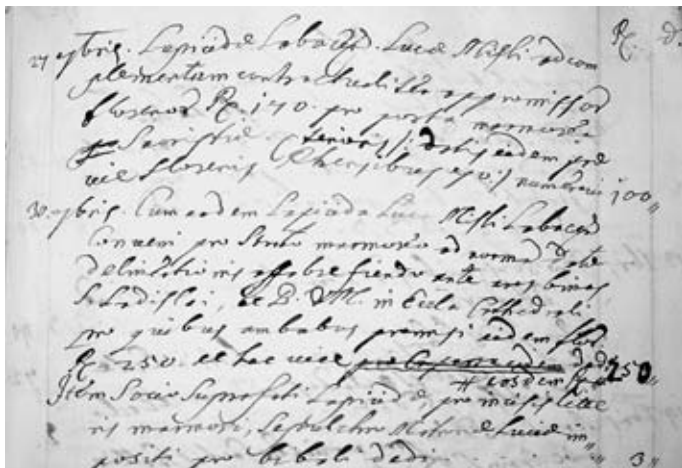 R. d.
27 9bris. Lapicidæ Labacẽs. Lucæ Misli ad com
plementum contractualiter appromissor
florenos R. 170. pro porta marmorea
Sacristiæ datis eidem prae
vie florenis numeravi 100 "
30. 9bris. Cum eodem Lapicida Luca Misli Labacẽs
Conveni pro marmoreo ad norma datæ
delineationis affabre fiendo ante aras binas
S. Ladislai, et B. V. M. in Eccla Cathedrali
pro quibus ambabus promisi eidem flor
R. 250. et hac vice eosdem dedi 250 "
Item Socio Suprafati Lapicidæ pro incisis litte
ris marmori, Sepulchro im
positi pro bibali dedi 3 "